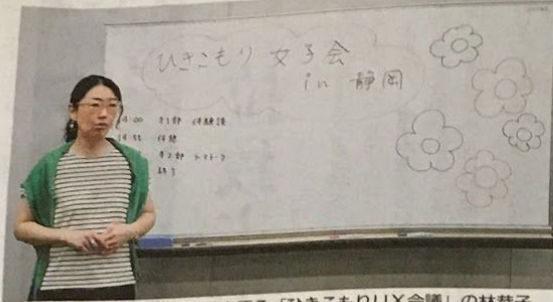 ひきこもり 女子会
in 静岡
14:00 第1部 体験談
休憩
第2部
終了
「ひきこもりUX会議」の林恭子